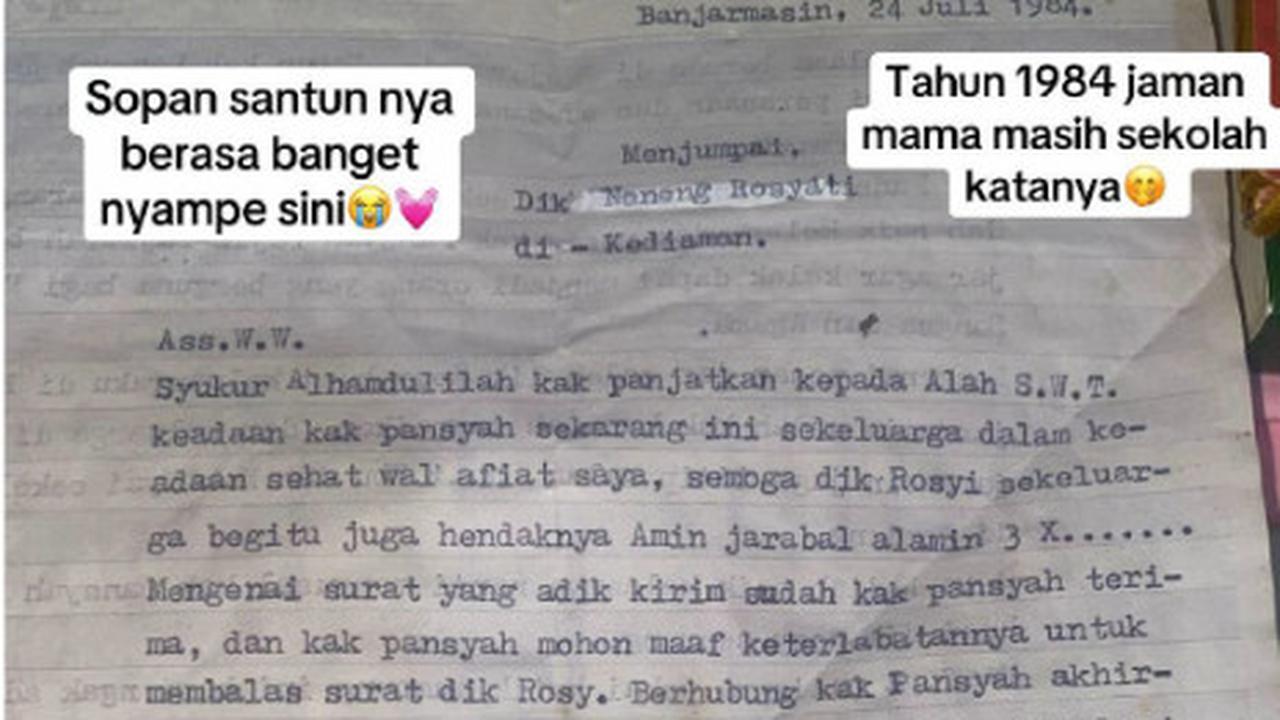 Banjarmasin, 24 Juli 1984.
Sopan santun nya
berasa banget
nyampe sini😭💓
Tahun 1984 jaman
mama masih sekolah
katanya🤭
Menjumpai.
Dik Noneng Rosyati
di - Kediaman.
Ass.W.W.
Syukur Alhamdulilah kak panjatkan kepada Alah S.W.T.
keadaan kak pansyah sekarang ini sekeluarga dalam ke-
adaan sehat wal afiat saya, semoga dik Rosyi sekeluar-
ga begitu juga hendaknya Amin jarabal alamin 3 X.......
Mengenai surat yang adik kirim sudah kak pansyah teri-
ma, dan kak pansyah mohon maaf keterlabatannya untuk
membalas surat dik Rosy. Berhubung kak Pansyah akhir-